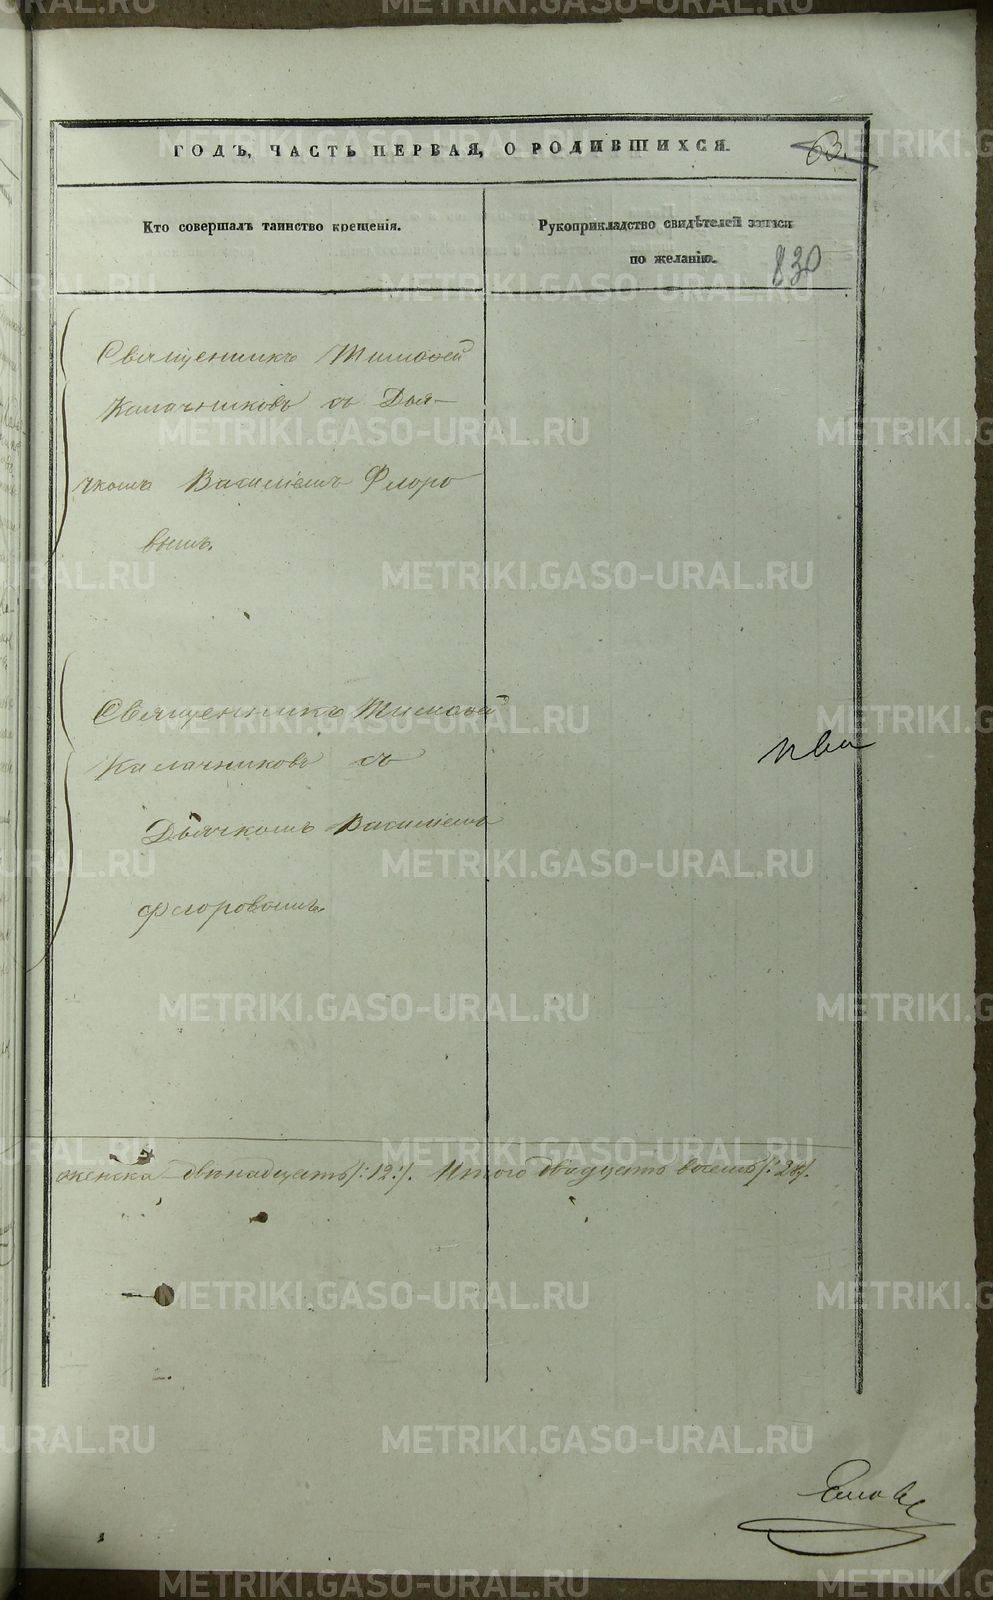 ГОДЪ, ЧАСТЬ ПЕРВАЯ, О РОДИВШИХСЯ.
63.
Кто совершалъ таинство крещенія.
Рукоприкладство свидѣтелей записи
по желанію.
830
Священникъ Тимофей
Калачниковъ съ Дья-
чкомъ Василіемъ Флоро
вымъ.
Священникъ Тимофей
Калачниковъ съ
Дьячкомъ Василіемъ
Флоровымъ.
женска двѣнадцать /:12:/. Итого двадцать восемь /:28/.
METRIKI.GASO-URAL.RU